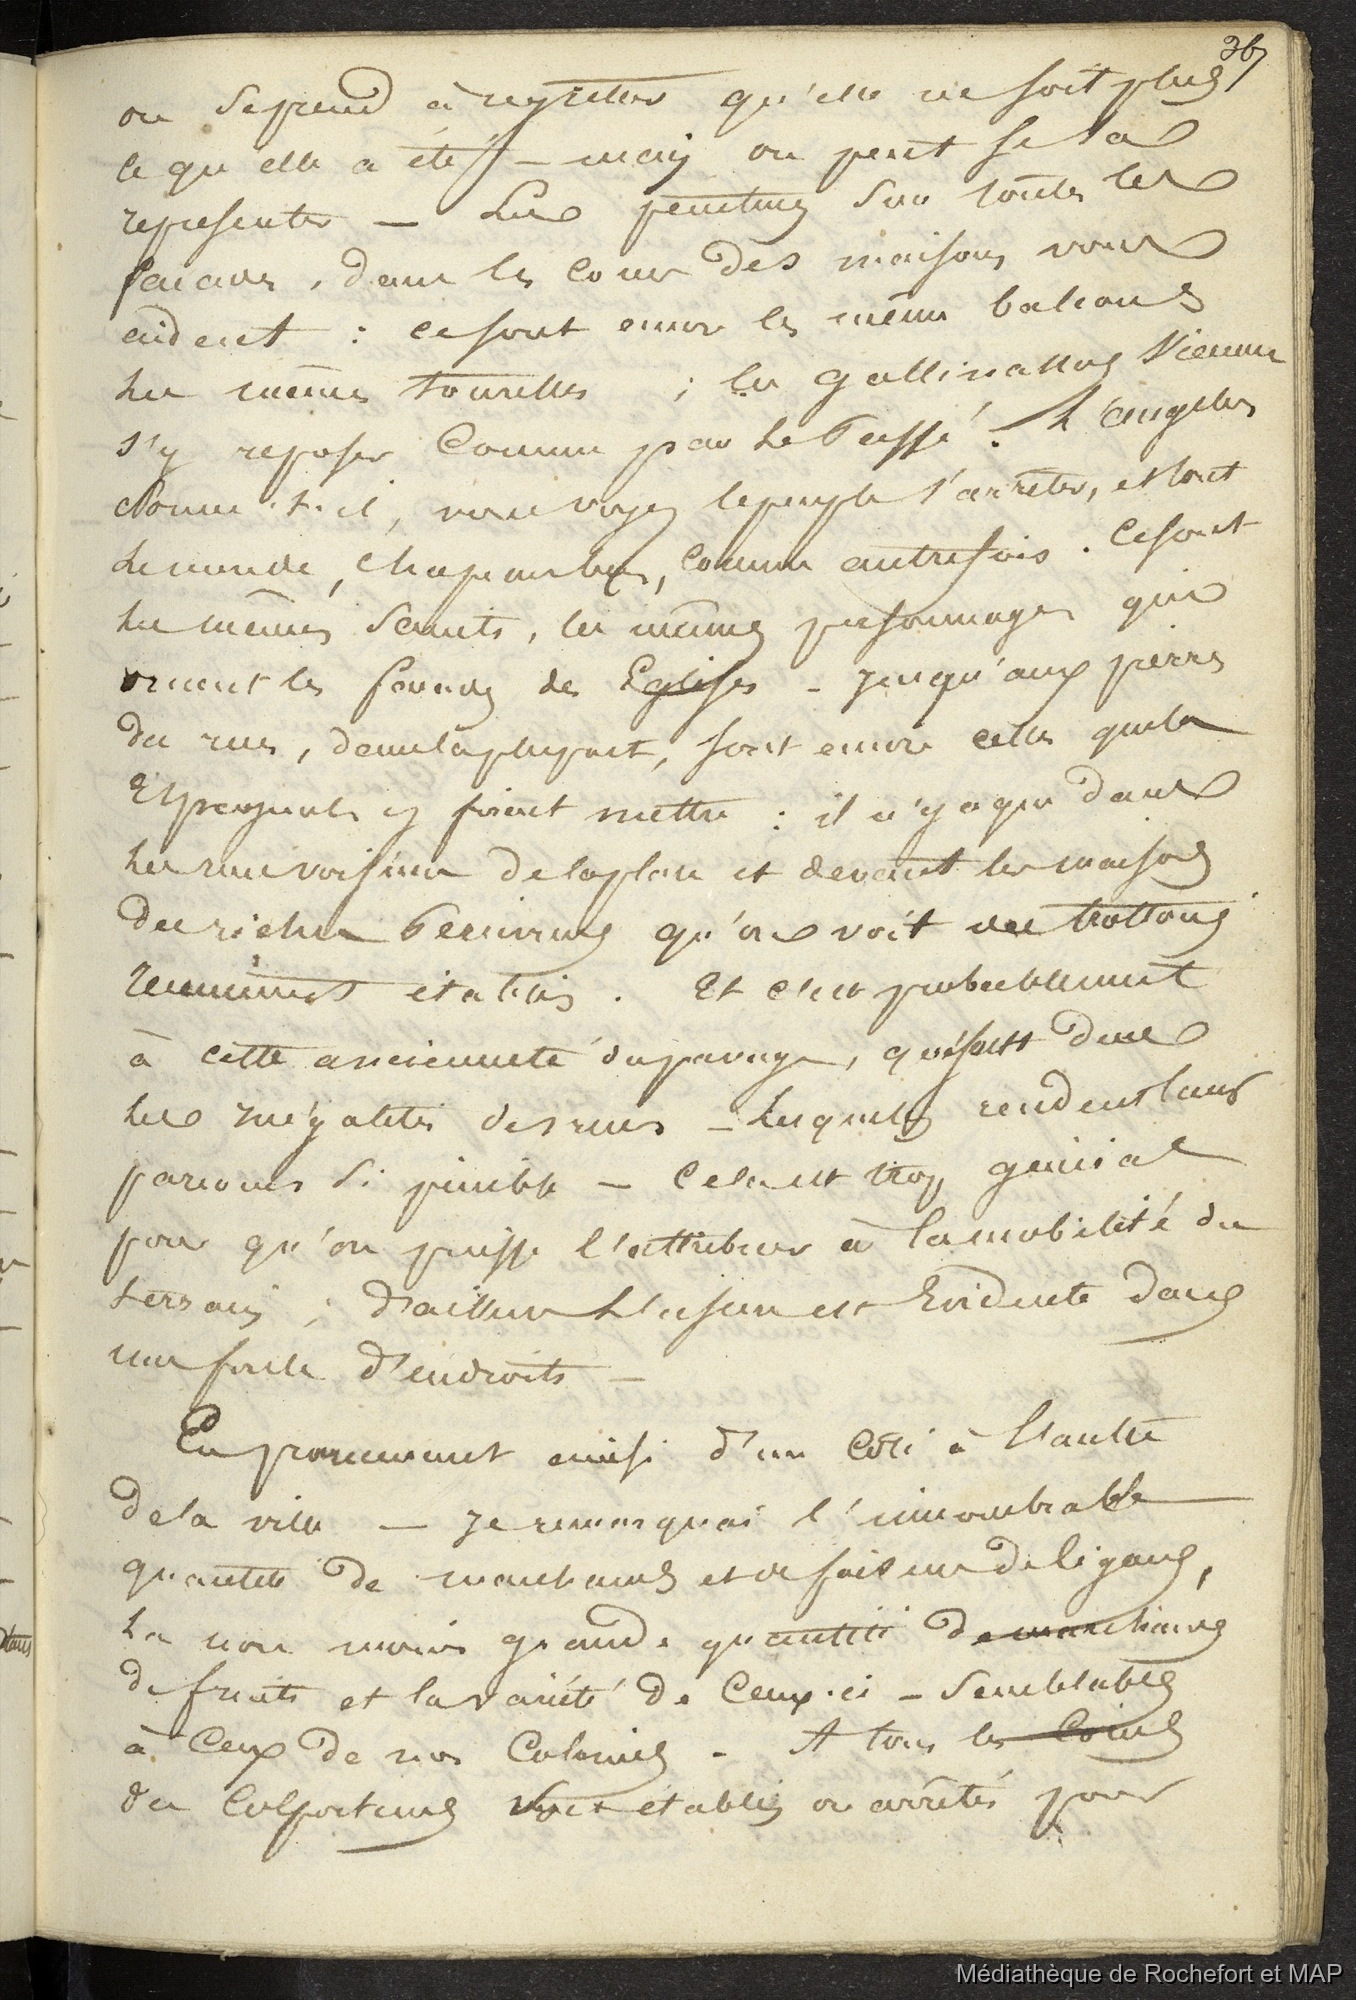 36
on se prend à regretter qu'elle ne soit plus
ce qu'elle a été, — mais on peut se la
représenter — Les peintures sur toutes les
façades, dans les cours des maisons vous
aident : ce sont encor les même balcons
les mêmes tourelles ; les Gallinassos vienne
s'y reposer comme par le passé. L'angelus
sonne-t-il, vous voyez le peuple s'arrêter, et tout
le monde, chapeau bas, comme autrefois. Ce sont
les mêmes saints, les mêmes personnages qui
ornent les façades des Eglises — jusqu'aux pierres
des rues, dans la plupart, sont encore celles que les
Espagnols y firent mettre : il n'y a que dans
les rues voisines de la place et devant les maisons
des riches Péruviens qu'on voit des trottoirs
récemment établis. Et c'est probablement
à cette ancienneté du pavage, que sont dues
les inégalités des rues — lesquelles rendent leur
parcours si pénible — Cela est trop général
pour qu'on puisse l'attribuer à la mobilité du
terrain ; d'ailleurs l'usure est évidente dans
une foule d'endroits —
En parcourant ainsi d'un côté à l'autre
de la ville — je remarquai l'innombrable
quantité de marchands et de faiseurs de cigares,
la non moins grande quantité de marchands
de fruits et la variété de ceux-ci — semblables
à ceux de nos Colonies — A tous les coins
des colporteurs sont établis ou arrêtés pour
Médiathèque de Rochefort et MAP